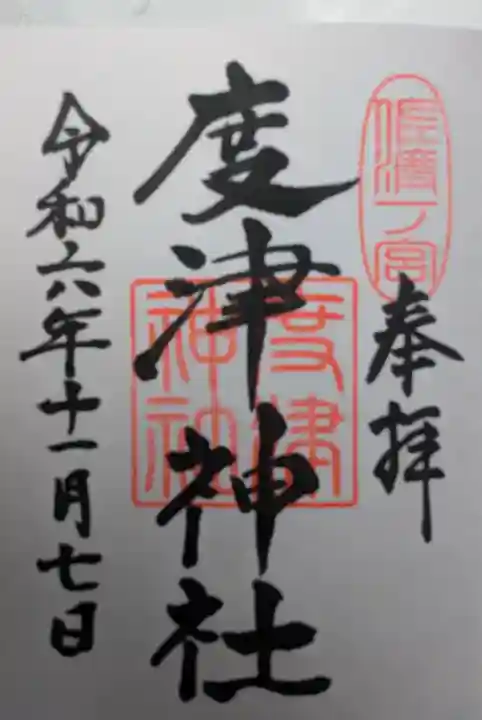 佐渡一ノ宮
奉拝
度津神社
度津神社
令和六年十一月七日